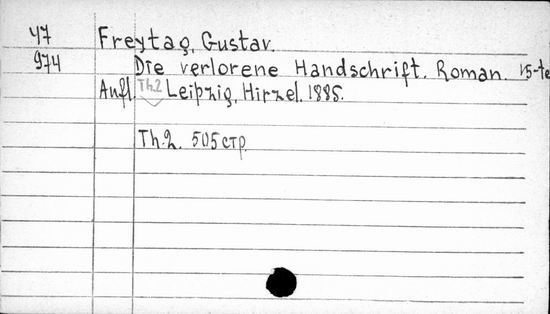 47 Freytag, Gustav.
974 Die verlorene Handschrift. Roman. 15-te
Aufl. Th.2 Leipzig, Hirzel. 1885.
Th.2. 505 стр.